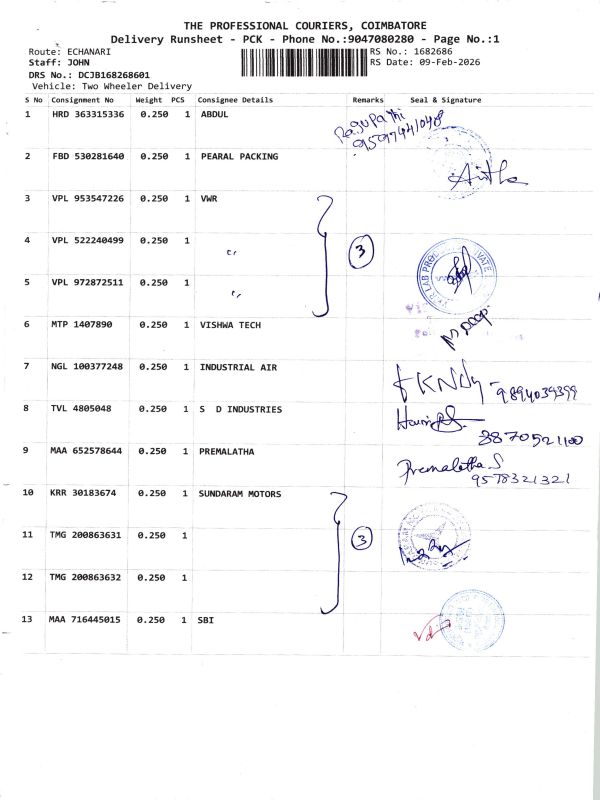 THE PROFESSIONAL COURIERS, COIMBATORE
Delivery Runsheet - PCK - Phone No.:9047080280 - Page No.:1
Route: ECHANARI RS No.: 1682686
Staff: JOHN RS Date: 09-Feb-2026
DRS No.: DCJB168268601
Vehicle: Two Wheeler Delivery
S No Consignment No Weight PCS Consignee Details Remarks Seal & Signature
1 HRD 363315336 0.250 1 ABDUL
2 FBD 530281640 0.250 1 PEARAL PACKING
3 VPL 953547226 0.250 1 VWR
4 VPL 522240499 0.250 1 " 3
5 VPL 972872511 0.250 1 "
6 MTP 1407890 0.250 1 VISHWA TECH
7 NGL 100377248 0.250 1 INDUSTRIAL AIR 9894039399
8 TVL 4805048 0.250 1 S D INDUSTRIES
3870521100
9 MAA 652578644 0.250 1 PREMALATHA Premalatha S
9578321321
10 KRR 30183674 0.250 1 SUNDARAM MOTORS
11 TMG 200863631 0.250 1 3
12 TMG 200863632 0.250 1
13 MAA 716445015 0.250 1 SBI